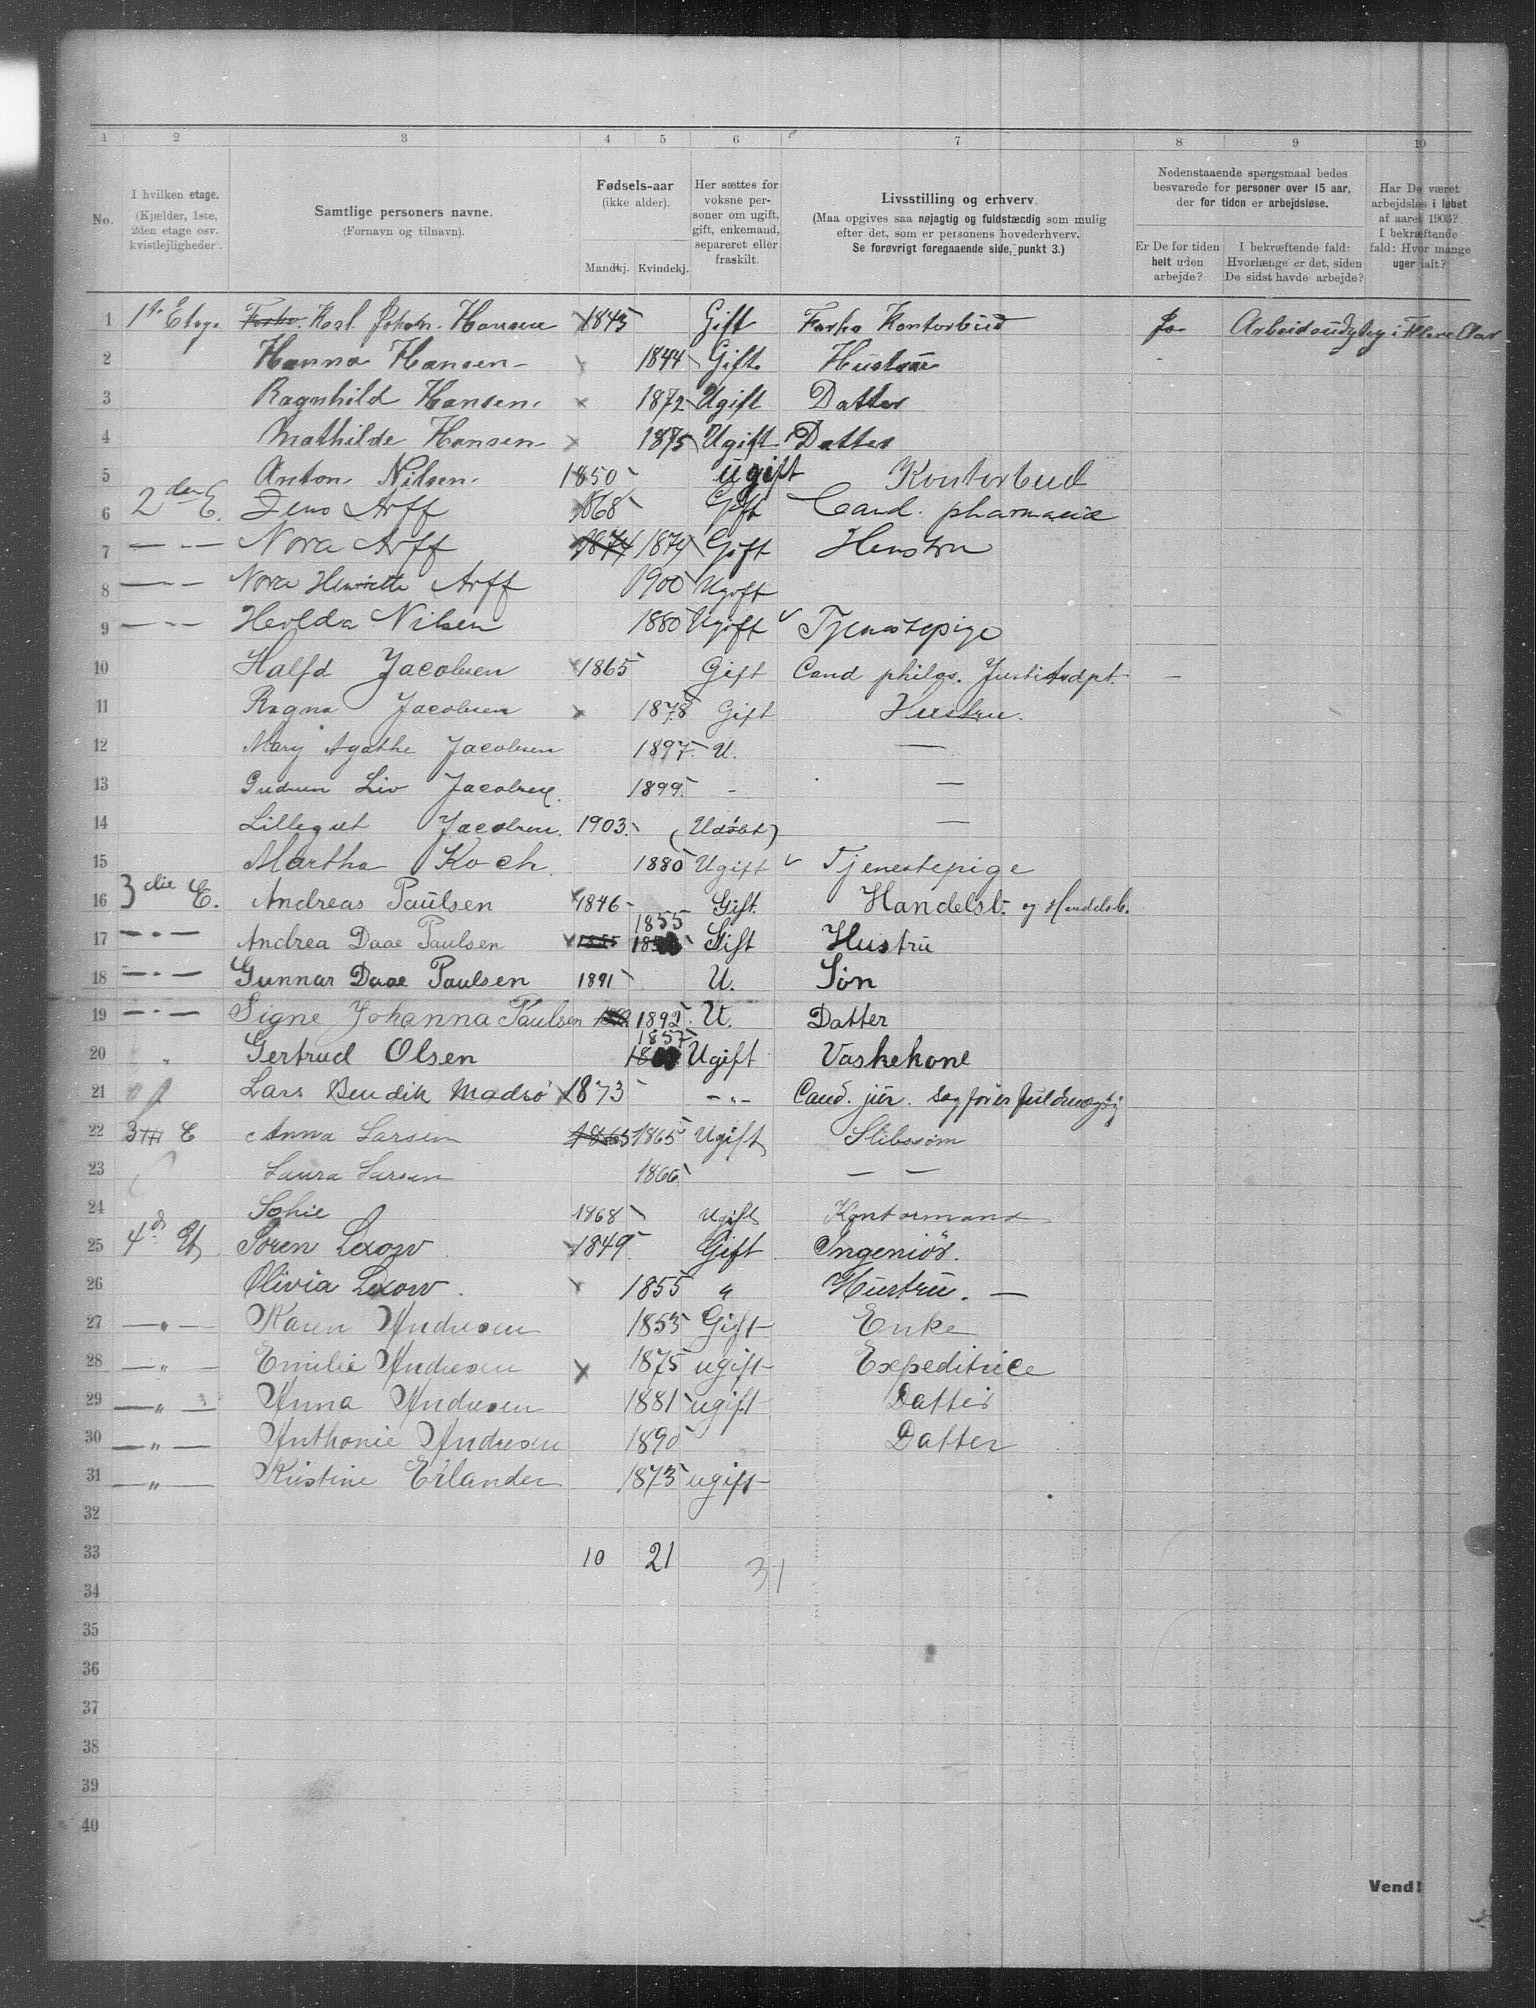 1 2 3 4 5 6 7 8 9 10
No.
I hvilken etage. (Kjælder, 1ste, 2den etage osv. kvistlejligheder).
Samtlige personers navne. (Fornavn og tilnavn).
Fødsels-aar (ikke alder). Mandkj. Kvindekj.
Her sættes for voksne personer om ugift, gift, enkemand, separeret eller fraskilt.
Livsstilling og erhverv. (Maa opgives saa nøjagtig og fuldstændig som mulig efter det, som er personens hovederhverv. Se forøvrigt foregaaende side, punkt 3.)
Nedenstaaende spørgsmaal bedes besvarede for personer over 15 aar, der for tiden er arbejdsløse.
Er De for tiden helt uden arbejde?
I bekræftende fald: Hvorlænge er det, siden De sidst havde arbejde?
Har De været arbejdsløs i løbet af aaret 1903? I bekræftende fald: Hvor mange uger ialt?
1 1ste Etage Karl Johan Hansen 1845 Gift Forho Kontorbud Ja
2 Hanna Hansen 1844 Gift Hustrue
3 Ragnhild Hansen 1872 Ugift Datter
4 Mathilde Hansen 1875 Ugift Datter
5 Anton Nilsen 1850 ugift Kontorbud
6 2den E. Jens Arff 1868 Gift Cand. pharmacie
7 — " — Nora Arff 1874 1874 Gift Hustru
8 — " — Nora Henriette Arff 1900 Ugift
9 — " — Hevlda Nilsen 1880 Ugift Tjenestepige
10 Halfd Jacobsen 1865 Gift Cand philos. Justitsdpt. —
11 Ragna Jacobsen 1878 Gift Hustru.
12 Mary Agathe Jacobsen 1897. U. —
13 Gudrun Liv Jacobsen. 1899. - —
14 Lillegut Jacobsen. 1903. (Udöbt) —
15 Martha Koch. 1880 Ugift Tjenestepige
16 3die E. Andreas Paulsen 1846 Gift. Handelsb. og Handelsb.
17 — " — Andrea Daae Paulsen 1855 1855 Gift Hustru
18 — " — Gunnar Daae Paulsen 1891 U. Søn
19 — " — Signe Johanna Paulsen 1892 1892. U. Datter
20 " Gertrud Olsen 1857 Ugift Vaskekone
21 Lars Bendik Madsø 1873 — " — Cand. jur. Sagfører fuldmægtig
22 3 E Anna Larsen 1865 1865 Ugift Slibssøm
23 Laura Larsen 1866. — —
24 Sophie 1868 Ugift Kontormand
25 4d Et. Søren Lexow 1849. Gift Ingeniør.
26 Olivia Lexow. 1855 " Hustru. —
27 — " — Karen Andresen 1853 Gift Enke
28 — " — Emilie Andresen 1875 ugift Expeditrice
29 — " — Anna Andresen 1881 ugift Datter
30 — " — Anthonie Andresen 1890 Datter
31 — " — Kristine Erlander 1873 ugift
32
33 10 21
31
34
35
36
37
38
39
40
Vend!